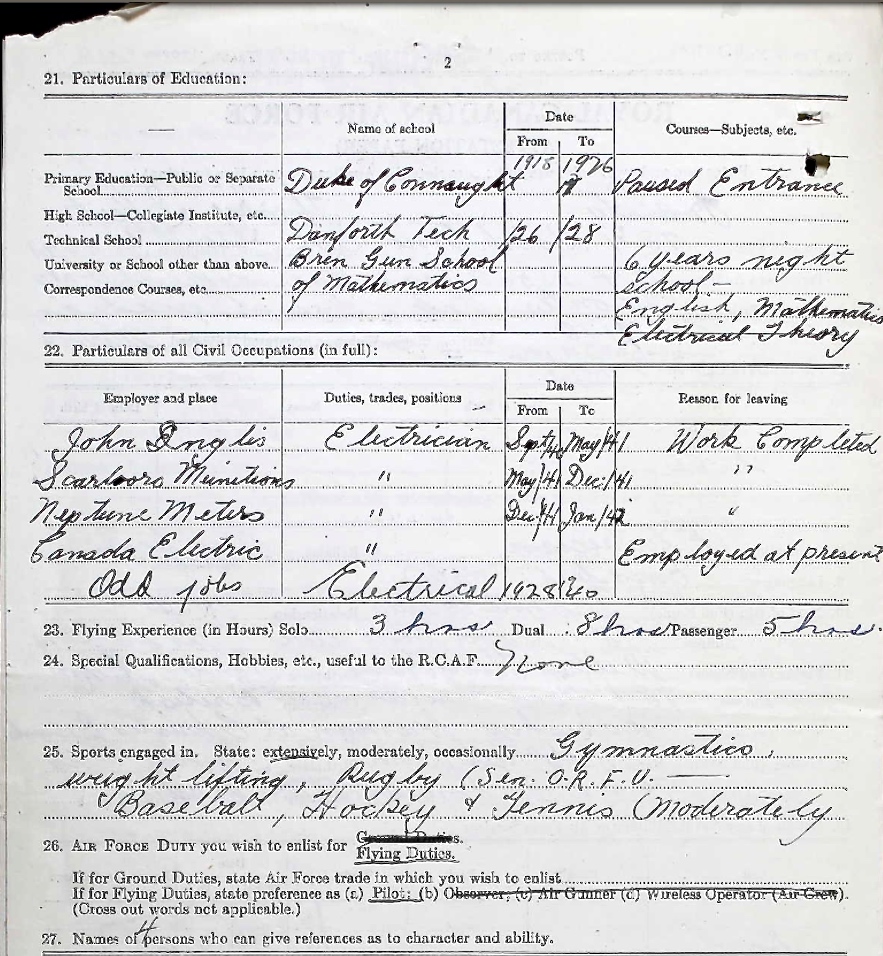 2
21. Particulars of Education:
Name of school
Date
From To
Courses—Subjects, etc.
1918 1926
Primary Education—Public or Separate School Duke of Connaught Passed Entrance
High School—Collegiate Institute, etc.
Technical School Danforth Tech /26 /28
University or School other than above Bren Gun School 6 years night
Correspondence Courses, etc. of Mathematics school—
English, Mathematics
Electrical Theory
22. Particulars of all Civil Occupations (in full):
Employer and place Duties, trades, positions Date Reason for leaving
From To
John Inglis Electrician Sept/40 May/41 Work Completed
Scarboro Munitions " May/41 Dec./41 "
Neptune Meters " Dec./41 Jan/42 "
Canada Electric " Employed at present
Odd jobs Electrical 1928 /40
23. Flying Experience (in Hours) Solo 3 hrs Dual 8 hrs Passenger 5 hrs.
24. Special Qualifications, Hobbies, etc., useful to the R.C.A.F. None
25. Sports engaged in. State: extensively, moderately, occasionally Gymnastics,
weight lifting, Rugby (Sen. O.R.F.U. —
Baseball, Hockey & Tennis (Moderately
26. AIR FORCE DUTY you wish to enlist for Ground Duties.
Flying Duties.
If for Ground Duties, state Air Force trade in which you wish to enlist
If for Flying Duties, state preference as (a) Pilot; (b) Observer, (c) Air Gunner (d) Wireless Operator (Air Crew).
(Cross out words not applicable.)
27. Names of 4 persons who can give references as to character and ability.